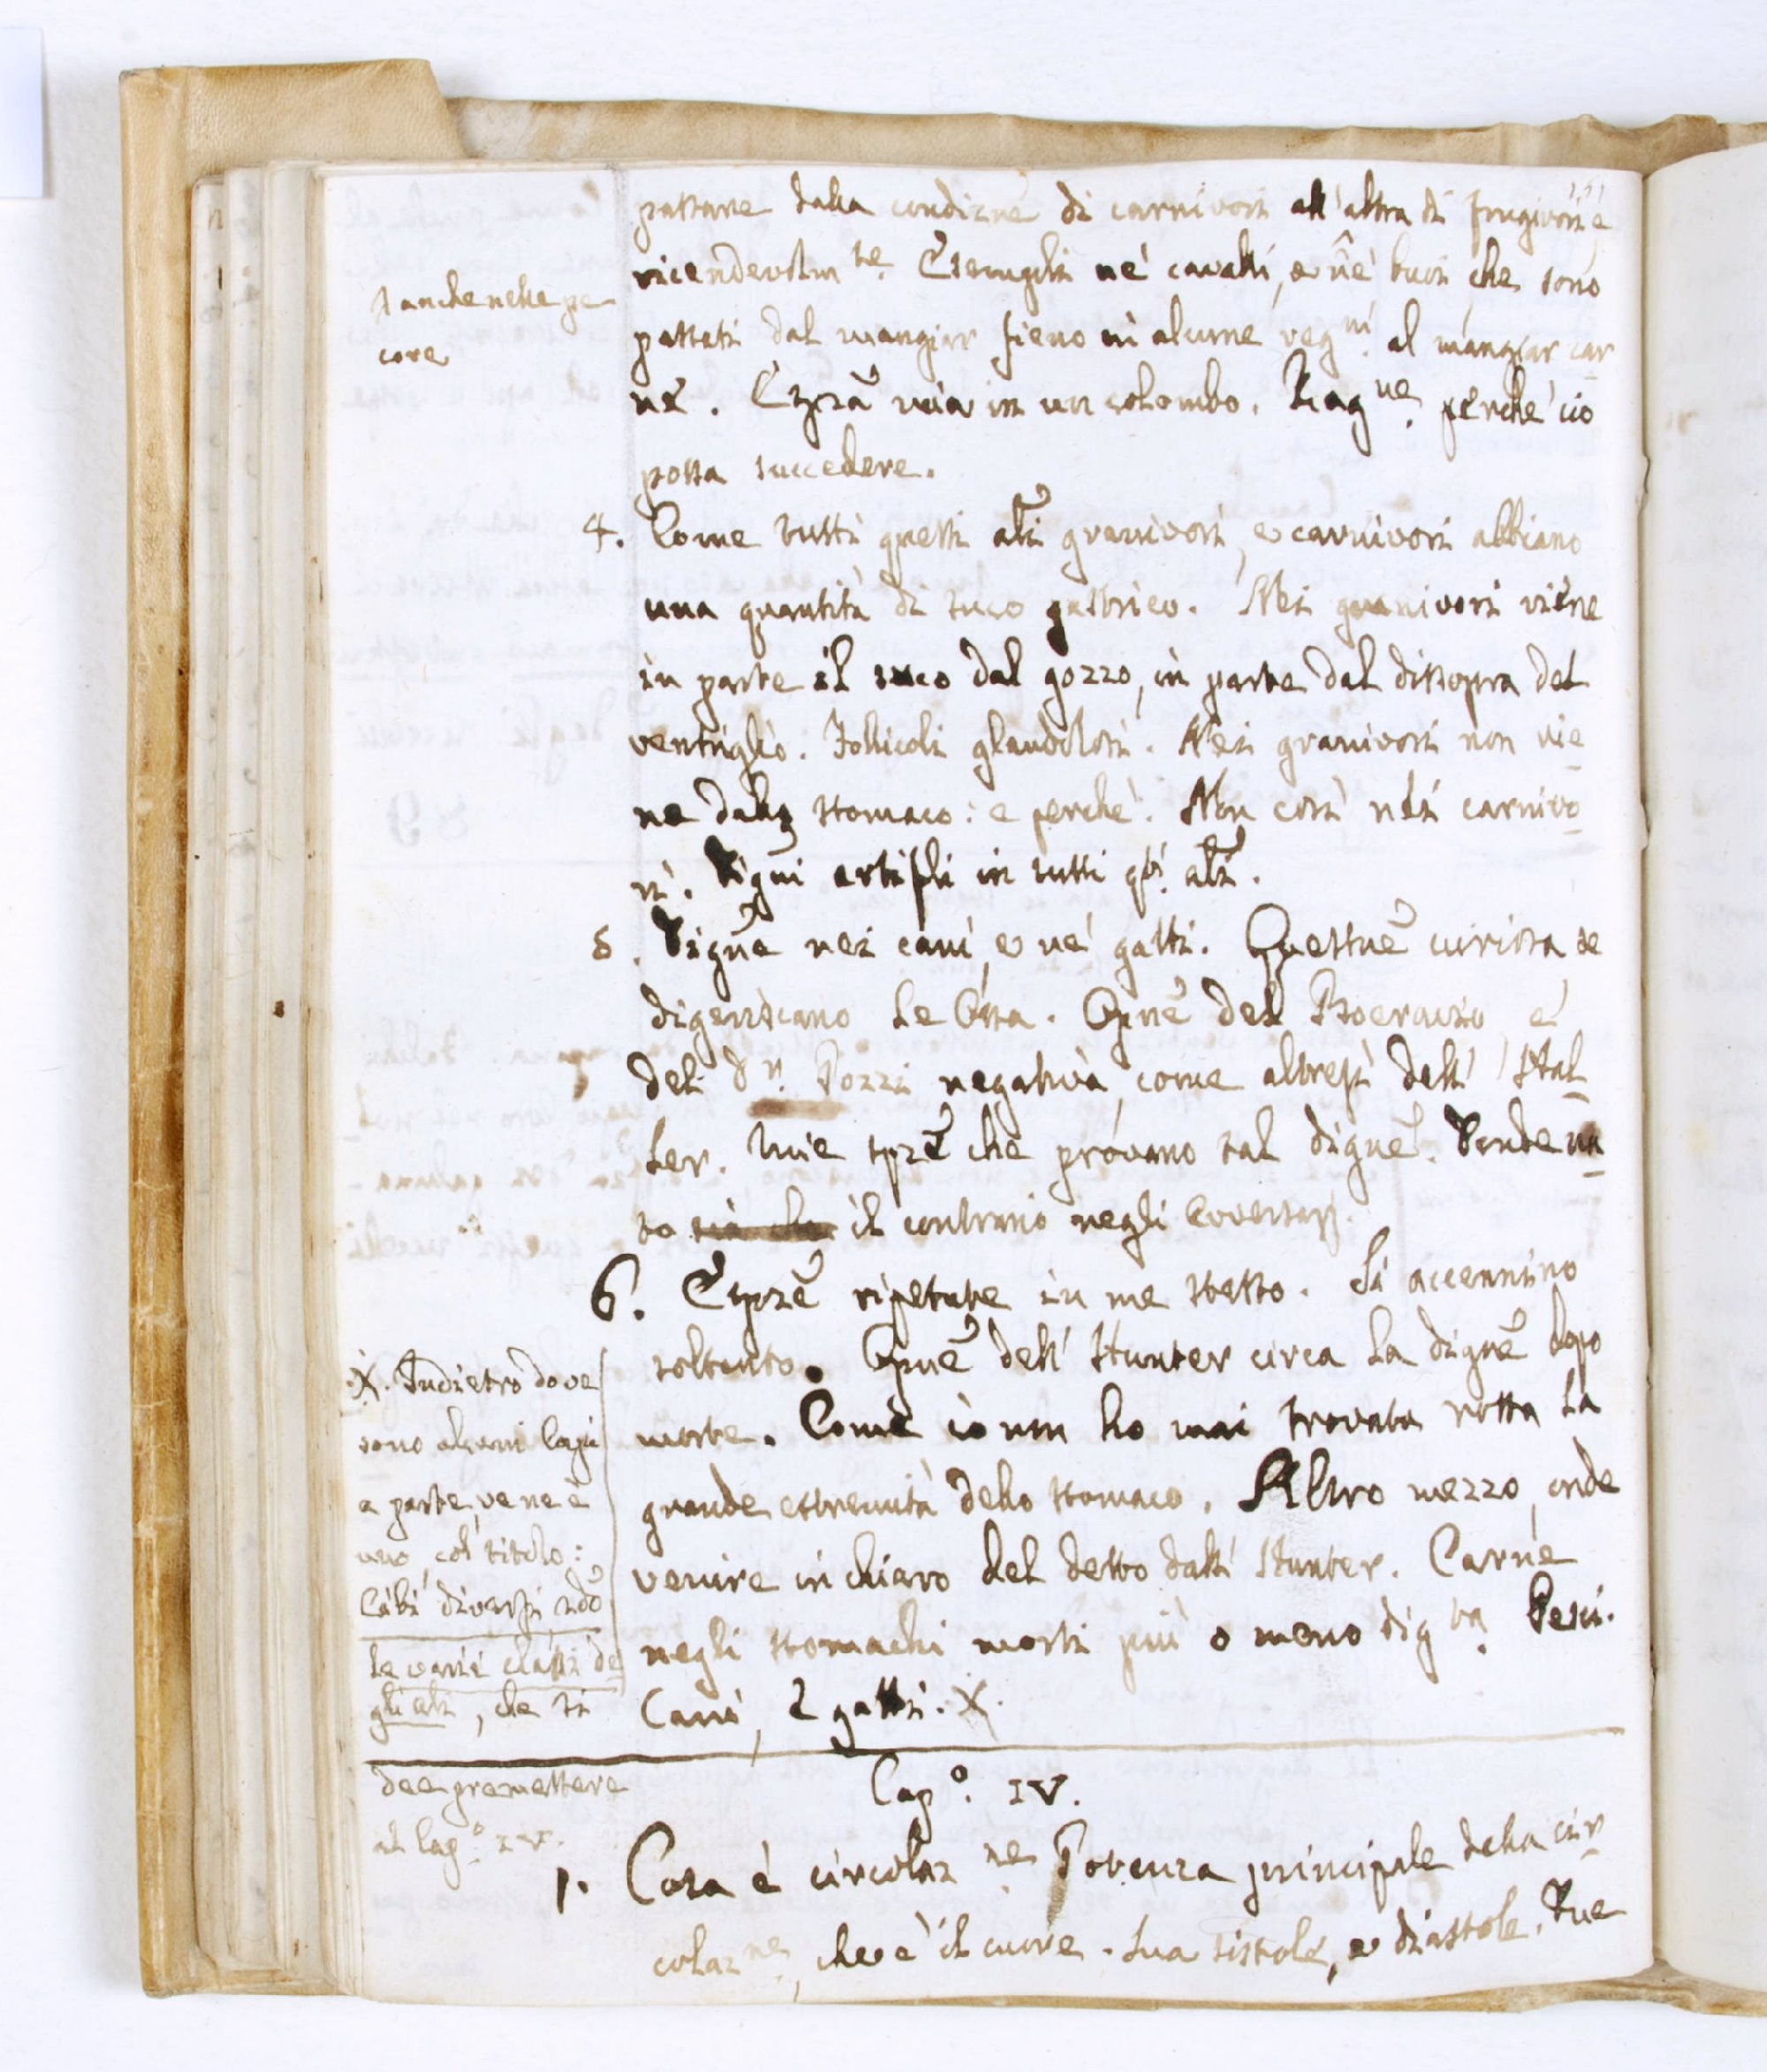 passare dalla condizne di carnivori all'altra di frugivori, e
vicendevolmte. Esempli né cavalli, e né buoi che sono
passati dal mangiar fieno in alcune regni. al mangiar car
ne. Esprã mia in un colombo. Ragne. perché ciò
possa succedere.
# anche nelle pe
core
4. Come tutti questi ali granivori, e carnivori abbiano
una quantità di suco gastrico. Nei granivori viene
in parte il suco dal gozzo, in parte dal dissopra del
ventriglio. Follicoli glandolosi. Nei granivori non vie
ne dallo stomaco: e perché. Non così nei carnivo
ri. Digni artifli in tutti qti. ali.
5. Digne nei cani, e né gatti. Questne curiosa se
digeriscano le Ossa. Opne del Boeravio, e
del Sr. Pozzi negativa, come altresì dell' Hal
ler. Mie sprẽ che provano tal digne. Donde na
sca il contrario negli avversarj.
6. Esprẽ ripetute in me stesso. Si accennino
soltanto. Opne dell' Hunter circa la digne dopo
morte. Come io non ho mai trovata rotta la
grande estremità dello stomaco. Altro mezzo, onde
venire in chiaro del detto dall' Hunter. Carne
negli stomachi morti più o meno digta. Pesci.
Cani, e gatti. X.
X. Indietro dove
sono alcuni Capi
a parte, ve ne è
uno, col titolo:
Cibi diversi, sdo
le varie classi de
gli ali, che si
dee premettere
al Capo. IV.
Capo. IV.
1. Cosa è circolazne. Potenza principale della cir
colazne, che è il cuore. Sua sistole, e diastole. Due